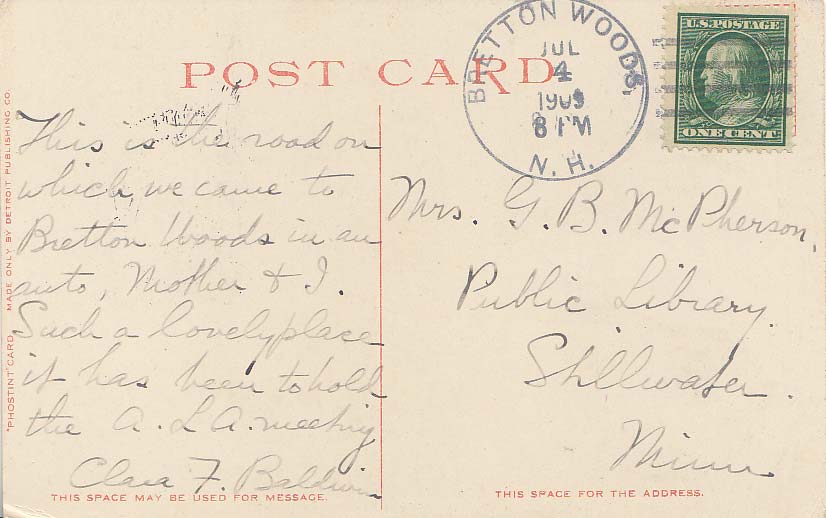 POST CARD
BRETTON WOODS,
JUL
4
1909
8 PM
N. H.
U.S. POSTAGE
ONE CENT
This is the road on
which we came to
Bretton Woods in an
auto, Mother & I.
Such a lovely place
it has been to hold
the A. L A. meeting
Clara F. Baldwin
Mrs. G. B. McPherson,
Public Library.
Stillwater.
Minn.
THIS SPACE MAY BE USED FOR MESSAGE.
THIS SPACE FOR THE ADDRESS.
"PHOSTINT" CARD MADE ONLY BY DETROIT PUBLISHING CO.